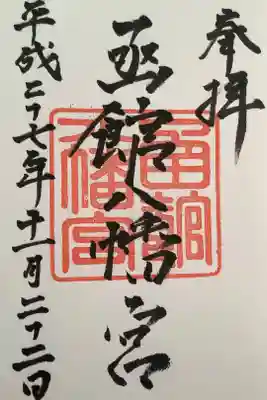 奉拝
函館八幡宮
平成二十七年十一月二十二日
函館
八幡宮